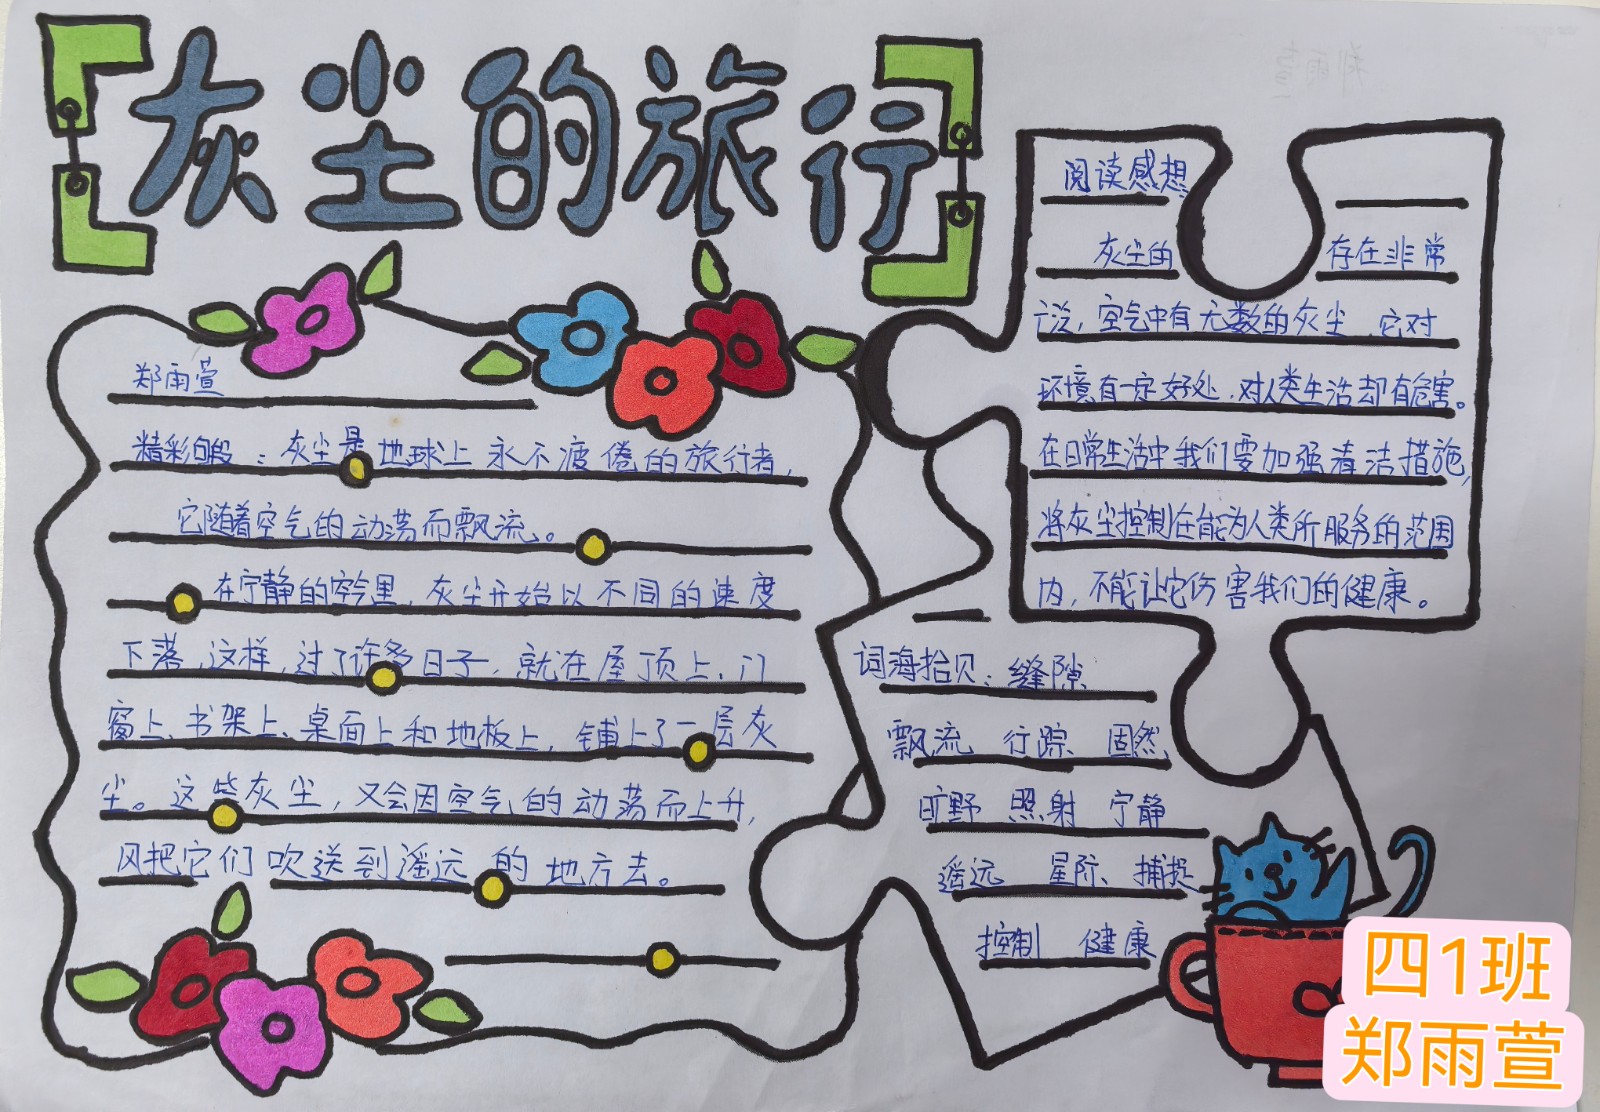 灰尘的旅行
郑雨萱
郑雨萱
精彩句段：灰尘是地球上永不疲倦的旅行者，
它随着空气的动荡而飘流。
在宁静的空气里，灰尘开始以不同的速度
下落，这样，过了许多日子，就在屋顶上、门
窗上、书架上、桌面上和地板上，铺上了一层灰
尘。这些灰尘，又会因空气的动荡而上升，
风把它们吹送到遥远的地方去。
阅读感想
灰尘的存在非常
广泛，空气中有无数的灰尘，它对
环境有一定好处，对人类生活却有危害。
在日常生活中我们要加强清洁措施，
将灰尘控制在能为人类所服务的范围
内，不能让它伤害我们的健康。
词海拾贝：缝隙
飘流 行踪 固然
旷野 照射 宁静
遥远 星际 捕捉
控制 健康
四1班
郑雨萱